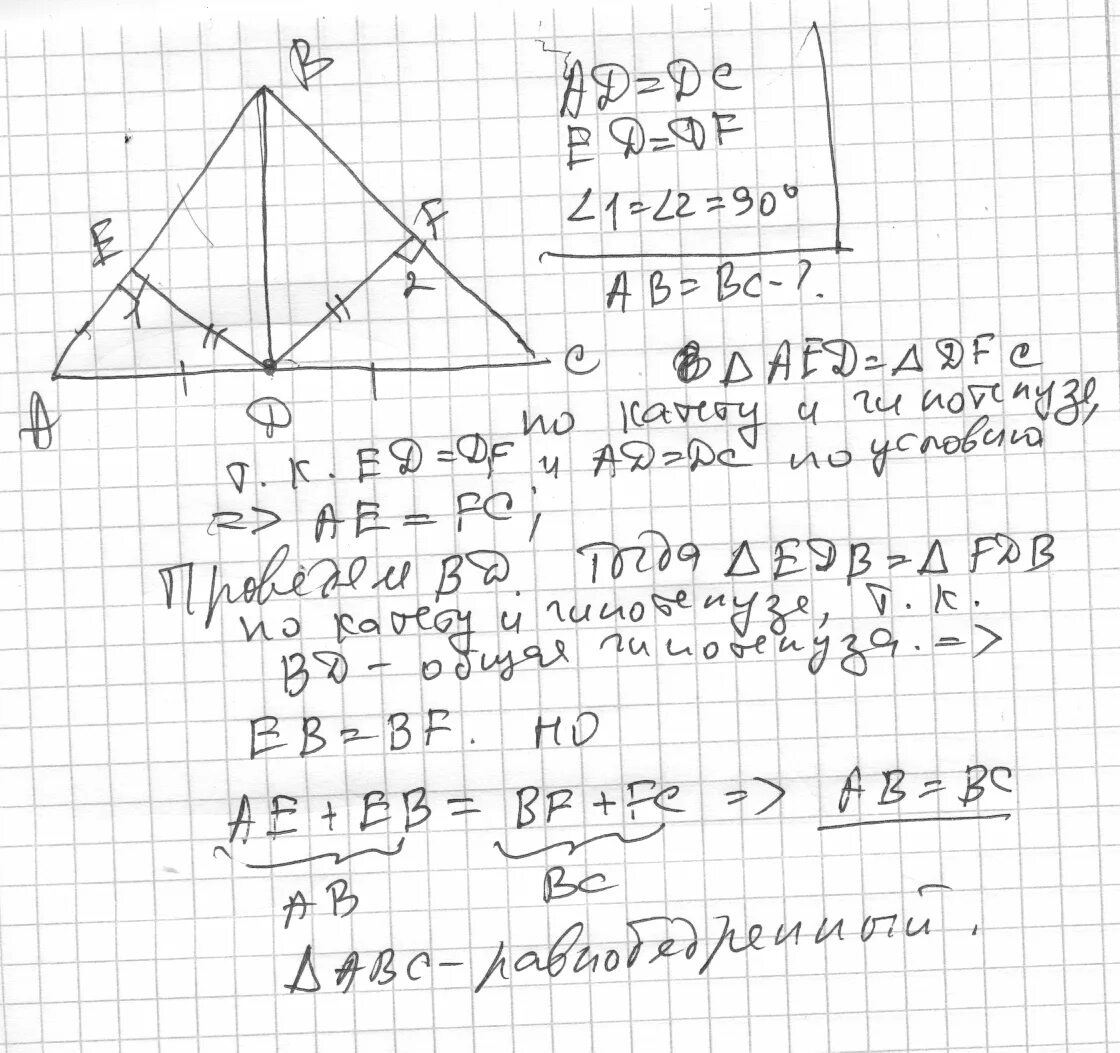 B
E
F
1
2
A
D
C
AD=DC
ED=DF
∠1=∠2=90°
AB=BC-?
В △AED=△DFC
по катету и гипотенузе,
т.к. ED=DF и AD=DC по условию
=> AE=FC;
Проведём BD. Тогда △EDB=△FDB
по катету и гипотенузе, т.к.
BD - общая гипотенуза. =>
EB=BF. но
AE+EB=BF+FC => AB=BC
AB
BC
△ABC-равнобедренный.